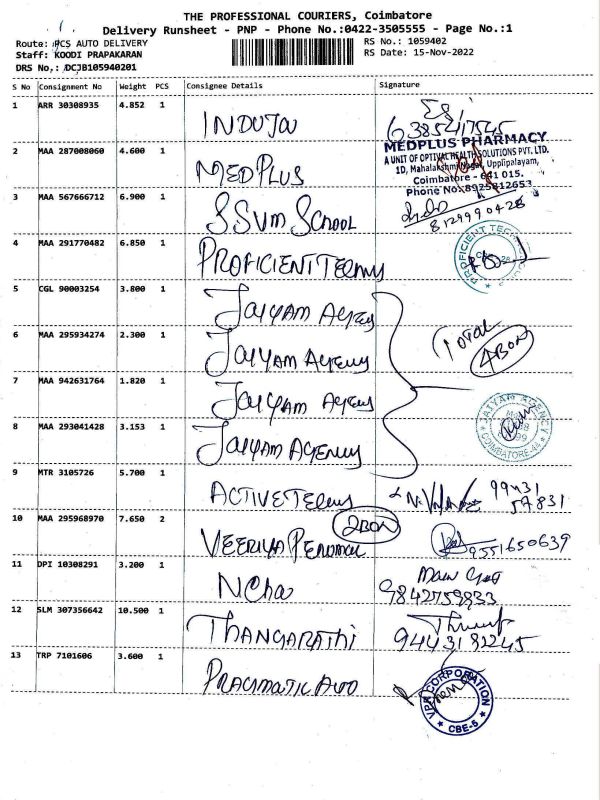 THE PROFESSIONAL COURIERS, Coimbatore
Delivery Runsheet - PNP - Phone No.:0422-3505555 - Page No.:1
Route: PCS AUTO DELIVERY RS No.: 1059402
Staff: KOODI PRAPAKARAN RS Date: 15-Nov-2022
DRS No.: DCJB105940201
S No Consignment No Weight PCS Consignee Details Signature
1 ARR 30308935 4.852 1 INDUJA
6385417545
2 MAA 287008060 4.600 1 MEDPLUS
MEDPLUS PHARMACY
A UNIT OF OPTIVAL HEALTH SOLUTIONS PVT. LTD.
1D, Mahalakshmi Nagar, Uppilipalayam,
Coimbatore - 641 015.
Phone No.:8925812653
3 MAA 567666712 6.900 1 SSVM SCHOOL
8129990428
4 MAA 291770482 6.850 1 PROFICIENT
PROFICIENT
5 CGL 90003254 3.800 1 JAIYAM AGENCY
6 MAA 295934274 2.300 1 JAIYAM AGENCY
TOTAL
4BOX
7 MAA 942631764 1.820 1 JAIYAM AGENCY
8 MAA 293041428 3.153 1 JAIYAM AGENCY
JAIYAM AGENCY
COIMBATORE-44
9 MTR 3105726 5.700 1 ACTIVE
99431
57831
10 MAA 295968970 7.650 2 VEERIYA PERUMAL
2BOX
9551650639
11 DPI 10308291 3.200 1
9842759933
12 SLM 307356642 10.500 1 THANGARATHI
13 TRP 7101606 3.600 1 PRAGMATIC AUTO
VPR CORPORATION
CBE-5